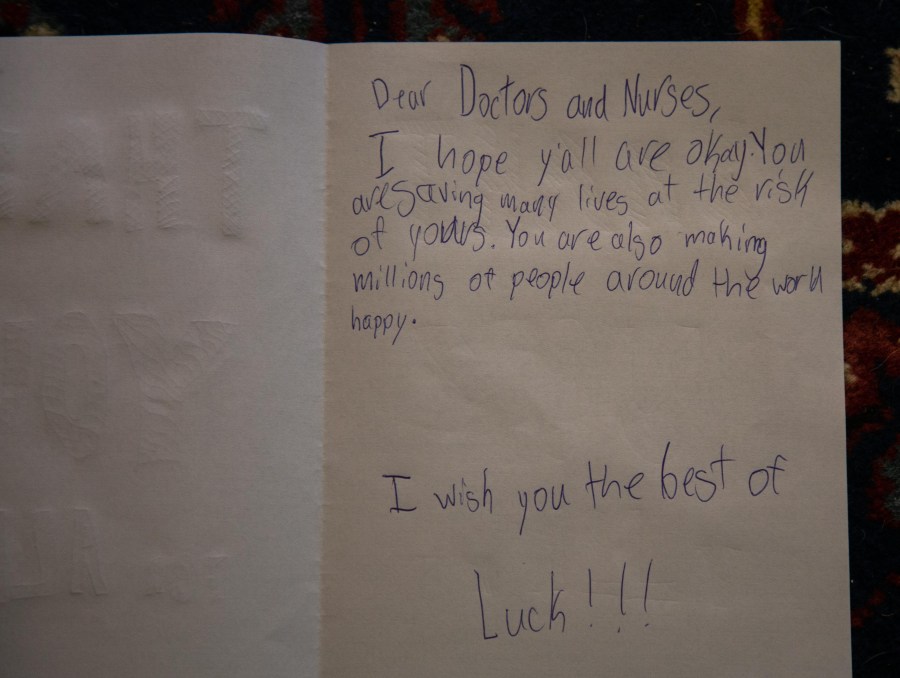 Dear Doctors and Nurses,
I hope y'all are okay. You
are saving many lives at the risk
of yours. You are also making
millions of people around the world
happy.
I wish you the best of
Luck!!!